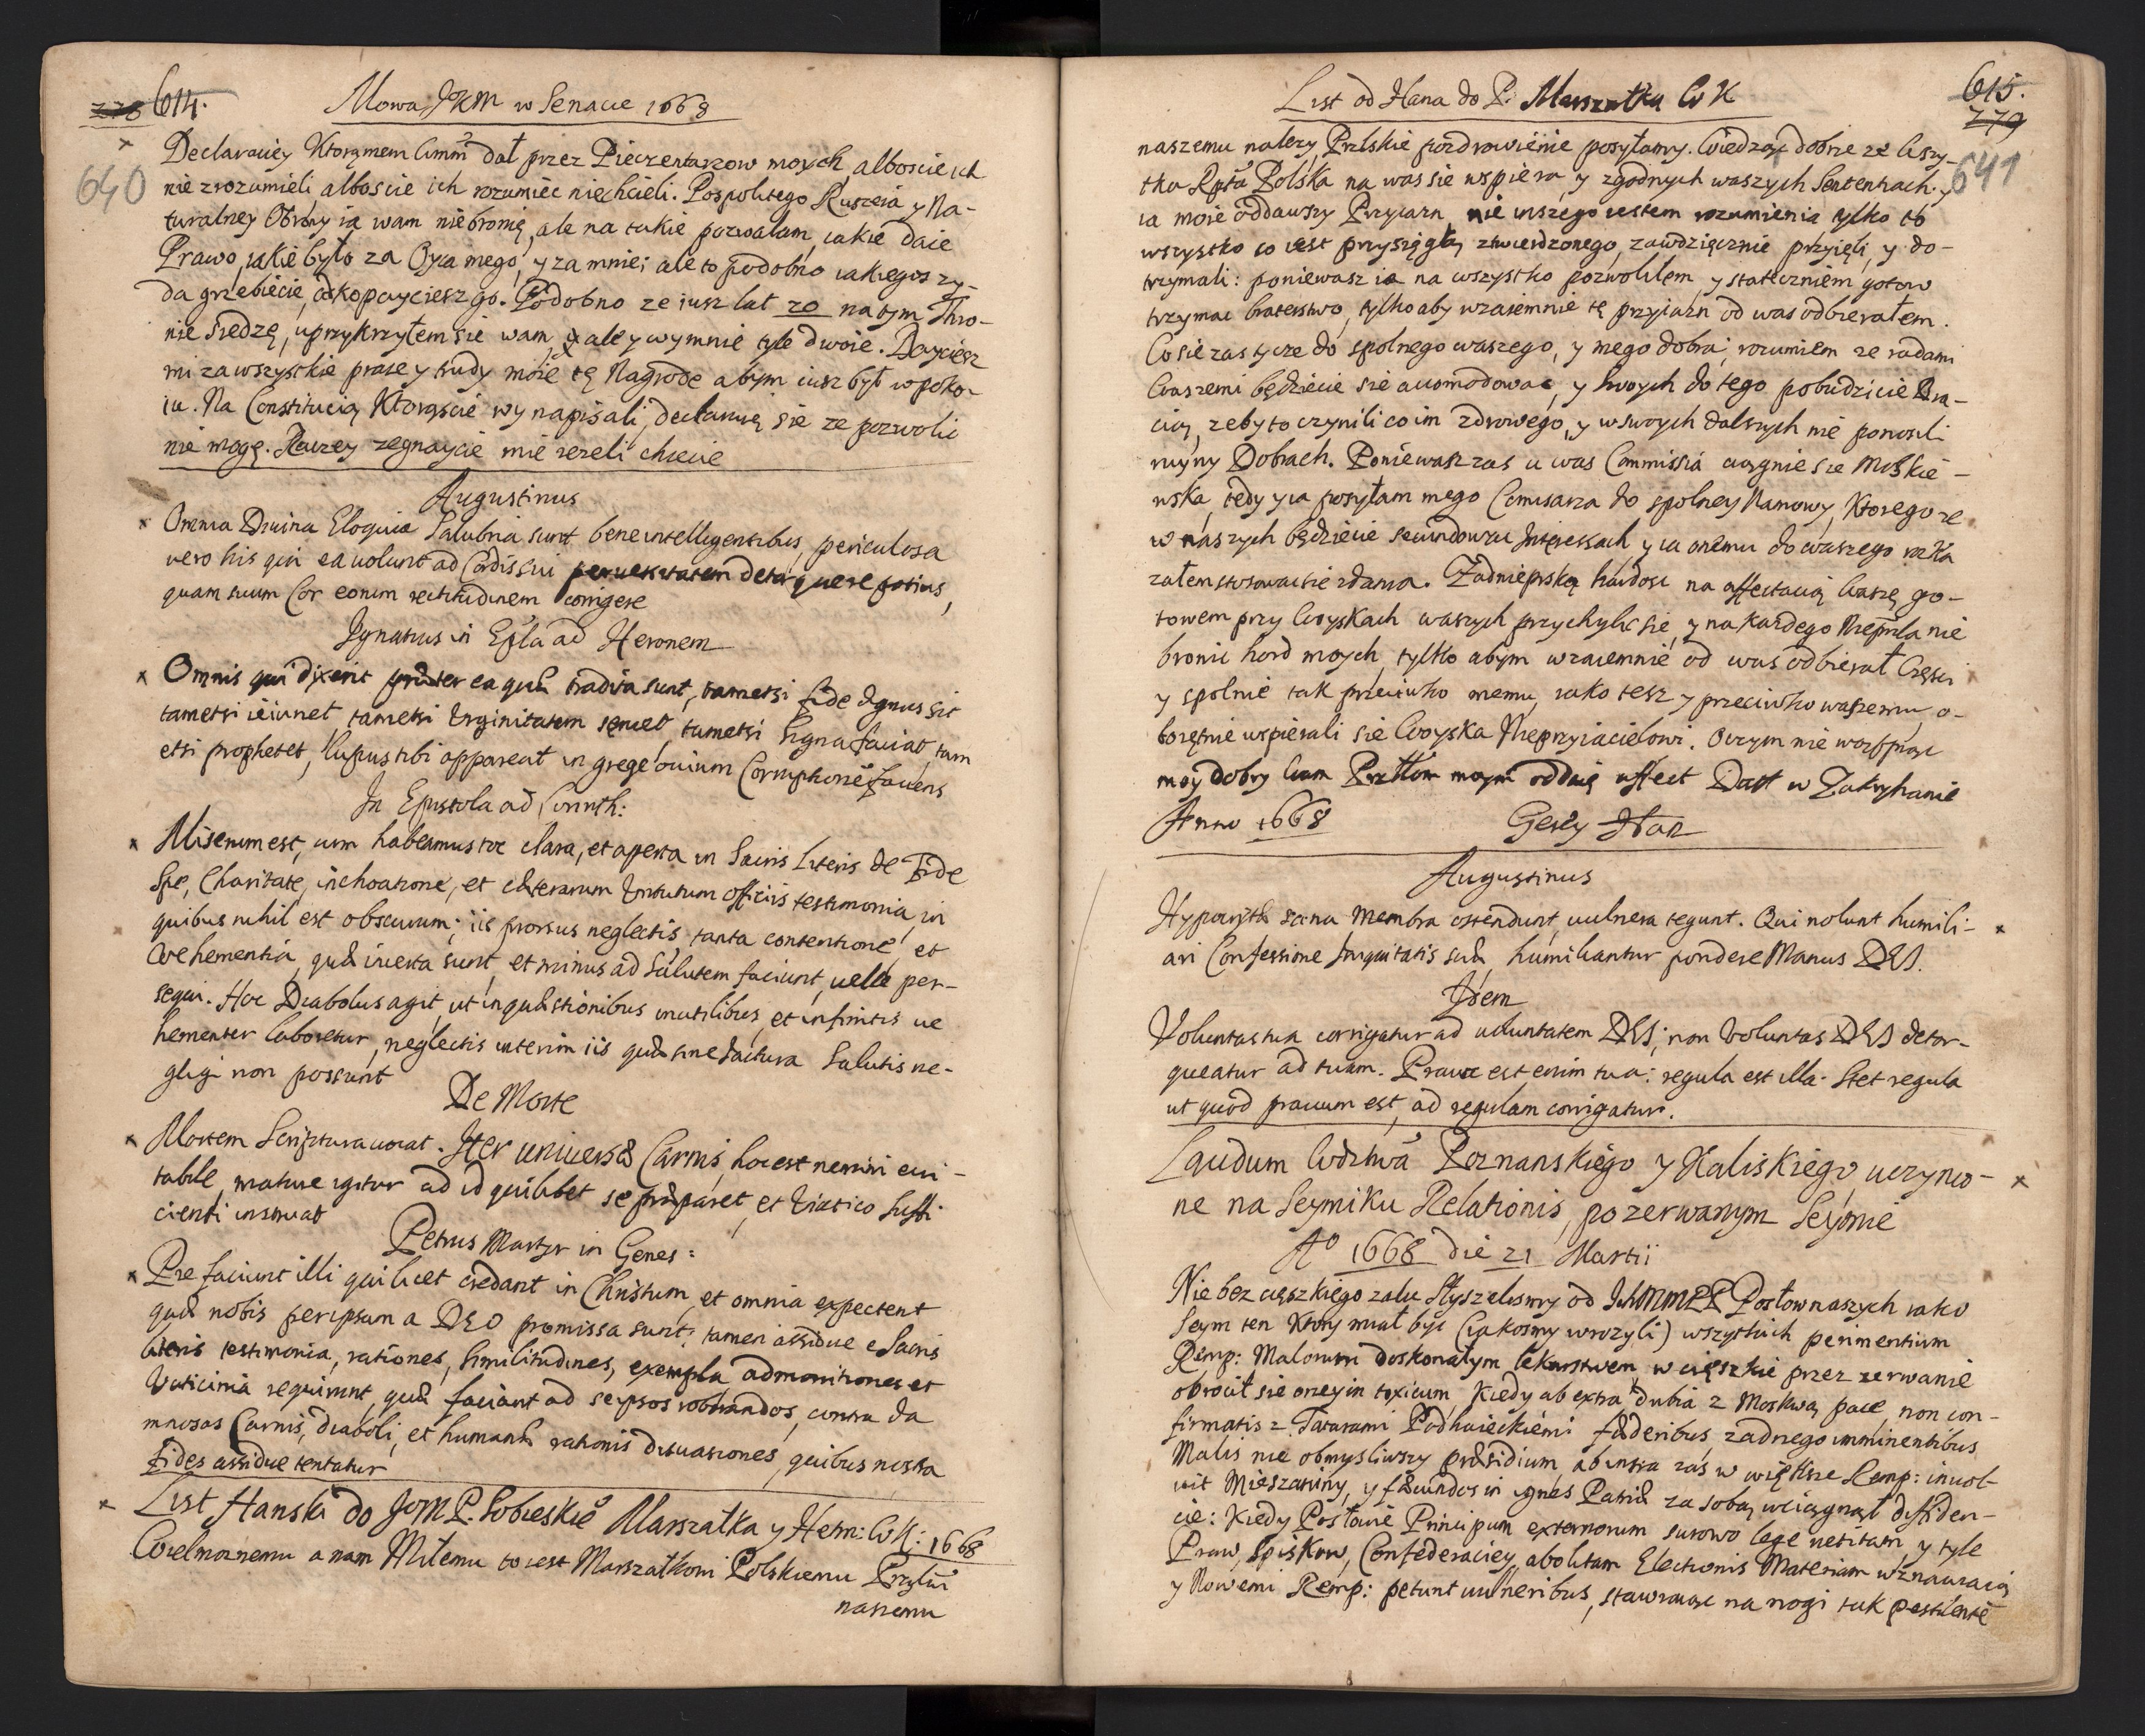 778 614.
Mowa JKM w Senacie 1668
640
Declaraciey Ktorąmem Wmm dał przez Pieczentarzow moych, alboscie ich
nie zrozumieli alboscie ich rozumiec niechcieli. Pospolitego Ruszeia y Na-
turalney Obrony ia wam niebronię, ale na takie pozwalam, iakie daie
Prawo, iakie było za Oyca mego, y za mnie; ale to podobno iakiegos zy-
da grzebiecie, odkopaycieszgo. Podobno ze iusz lat 20 na tym Thro-
nie siedzę, uprzykrzyłem sie wam, ale y wy mnie tyle dwoie. Dayciesz
mi za wszystkie prace y trudy moie tę Nagrode abym iusz był w poko-
iu. Na Constitucią Ktorąscie wy napisali, declaruię sie ze pozwolic
nie mogę. Raczey zegnaycie mie iezeli chcecie
Augustinus
Omnia Divina Eloquia Salubria sunt bene intelligentibus, periculosa
vero his qui ea volunt ad Cordis sui perversitatem detorquere potius,
quam suum Cor eorum rectitudinem corrigere
Ignatius in Epla ad Heronem
Omnis qui dixerit præter ea quæ tradita sunt, tametsi fide dignus sit
tametsi ieiunet tametsi Virginitatem servet, tametsi Signa faciat, tam
etsi prophetet, Lupus tibi appareat in grege ovium Corruptionē faciens
In Epistola ad Corinth:
Miserum est, cum habeamus tot clara, et aperta in Sacris Literis de Fide
Spe, Charitate, inchoatione, et cæterarum Virtutum officiis testimonia, in
quibus nihil est obscurum; iis prorsus neglectis, tanta contentione, et
Vehementia, quæ incerta sunt, et minus ad Salutem faciunt, velle per-
sequi. Hoc Diabolus agit, ut in quæstionibus inutilibus, et infinitis ve
hementer laboretur, neglectis interim iis quæ sine iactura Salutis ne-
gligi non possunt
De Morte
Mortem Scriptura vocat. Iter universæ Carnis, hoc est nemini evi-
tabile, mature igitur ad id quilibet se præparet, et Viatico suffi
cienti instruat
Petrus Martyr in Genes:
Pie faciunt illi qui licet credant in Christum, et omnia expectent
quæ nobis per ipsum a DEO promissa sunt; tamen assidue e Sacris
literis testimonia, rationes, similitudines, exempla admonitiones et
Vaticinia requirunt, quæ faciant ad seipsos roborandos, contra da
mnosas Carnis, diaboli, et humanæ rationis dissuasiones, quibus nostra
fides assidue tentatur
List Hanski do JeM P. Sobieskie Marszałka y Hetm: WK: 1668
Wielmoznemu a nam Miłemu to iest Marszałkowi Polskiemu Przylwi
naszemu
List od Hana do P. Marszałka W K
615.
779
641
naszemu nalezy Przlskie pozdrowienie posyłamy. Wiedząc dobrze ze Wszy-
tka Rpta Polska na was sie wspiera, y zgodnych waszych Sentenciach. y
ia moie oddawszy Przyiazn, nie inszego iestem rozumienia tylko to
wszystko co iest przysięgłą ztwierdzonego, zawdzięcznie przyięli, y do-
trzymali: poniewasz ia na wszystko pozwoliłem, y statecznięm gotow
trzymac braterstwo, tylko aby wzaiemnie tę przyiazn od was odbierałem.
Co sie zas tycze do spolnego waszego, y mego dobra, rozumiem ze radami
Waszemi będziecie sie accomodowac, y swoych do tego pobudzicie Bra-
cią, zeby to czynili co im zdrowego, y w swoych dalszych nie ponosili
ruyny Dobrach. Poniewasz zas u was Commissia ciągnie sie Moskie-
wska, tedy y ia posyłam mego Comisarza do spolney Namowy, Ktorego ze
w naszych będziecie secundowac Interessach, y ia onemu do waszego roska
załem stosowac sie zdania. Zadnieprską hardosc na affectacią Waszę go-
towem przy Woyskach waszych przychylic sie, y na kazdego Nieprzla nie
bronic hord moych, tylko abym wzaiemnie od was odbierał Częsci
y spolnie tak przeciwko memu, iako tesz y przeciwko waszemu, o-
boiętnie wspierali sie Woyska Nieprzyiacielowi. O czym nie wątpiąc
moy dobry Wam Prztlom moym oddaię affect Datt w Bakczyhanie
Anno 1668 Gerey Han
Augustinus
Hypocritæ sana Membra ostendunt, vulnera tegunt. Qui nolunt humili-
ari Confessione Iniquitatis suæ, humiliantur pondere Manus DEI.
Idem
Voluntas tua corrigatur ad voluntatem DEI; non Voluntas DEI detor-
queatur ad tuam. Prava est enim tua: regula est illa. Stet regula
ut quod pravum est, ad regulam corrigatur.
Laudum Wdztwa Poznanskiego y Kaliskiego uczynio-
ne na Seymiku Relationis, po zerwanym Seymie
Aº 1668 die 21 Martii
Nie bez cięszkiego zalu słyszelismy od IchMMPP Posłow naszych iako
Seym ten Ktory miał byc (iakosmy wrozyli) wszytkich perimentium
Remp: Malorum doskonałym lekarstwem, w cięszkie przez zerwanie
obrocił sie oneyin toxicum, Kiedy ab extra dubia z Moskwą pace, non con-
firmatis z Tatarami Podhaieckiemi fæderibus, zadnego imminentibus
Malis nie obmysliwszy præsidium, ab intra zas w większe Remp: invol-
vit Mieszaniny, y fæcundos in ignes Patriæ za sobą wciągnął diffiden-
cie: Kiedy Posłowie Principum externorum surowo lege vetitam y tyle
Praw, Spiskow, Confederaciey, abolitam Electionis Materiam wznawiaią
y Nowemi Remp: petunt vulneribus, stawiaiąc na nogi tak pestilentē